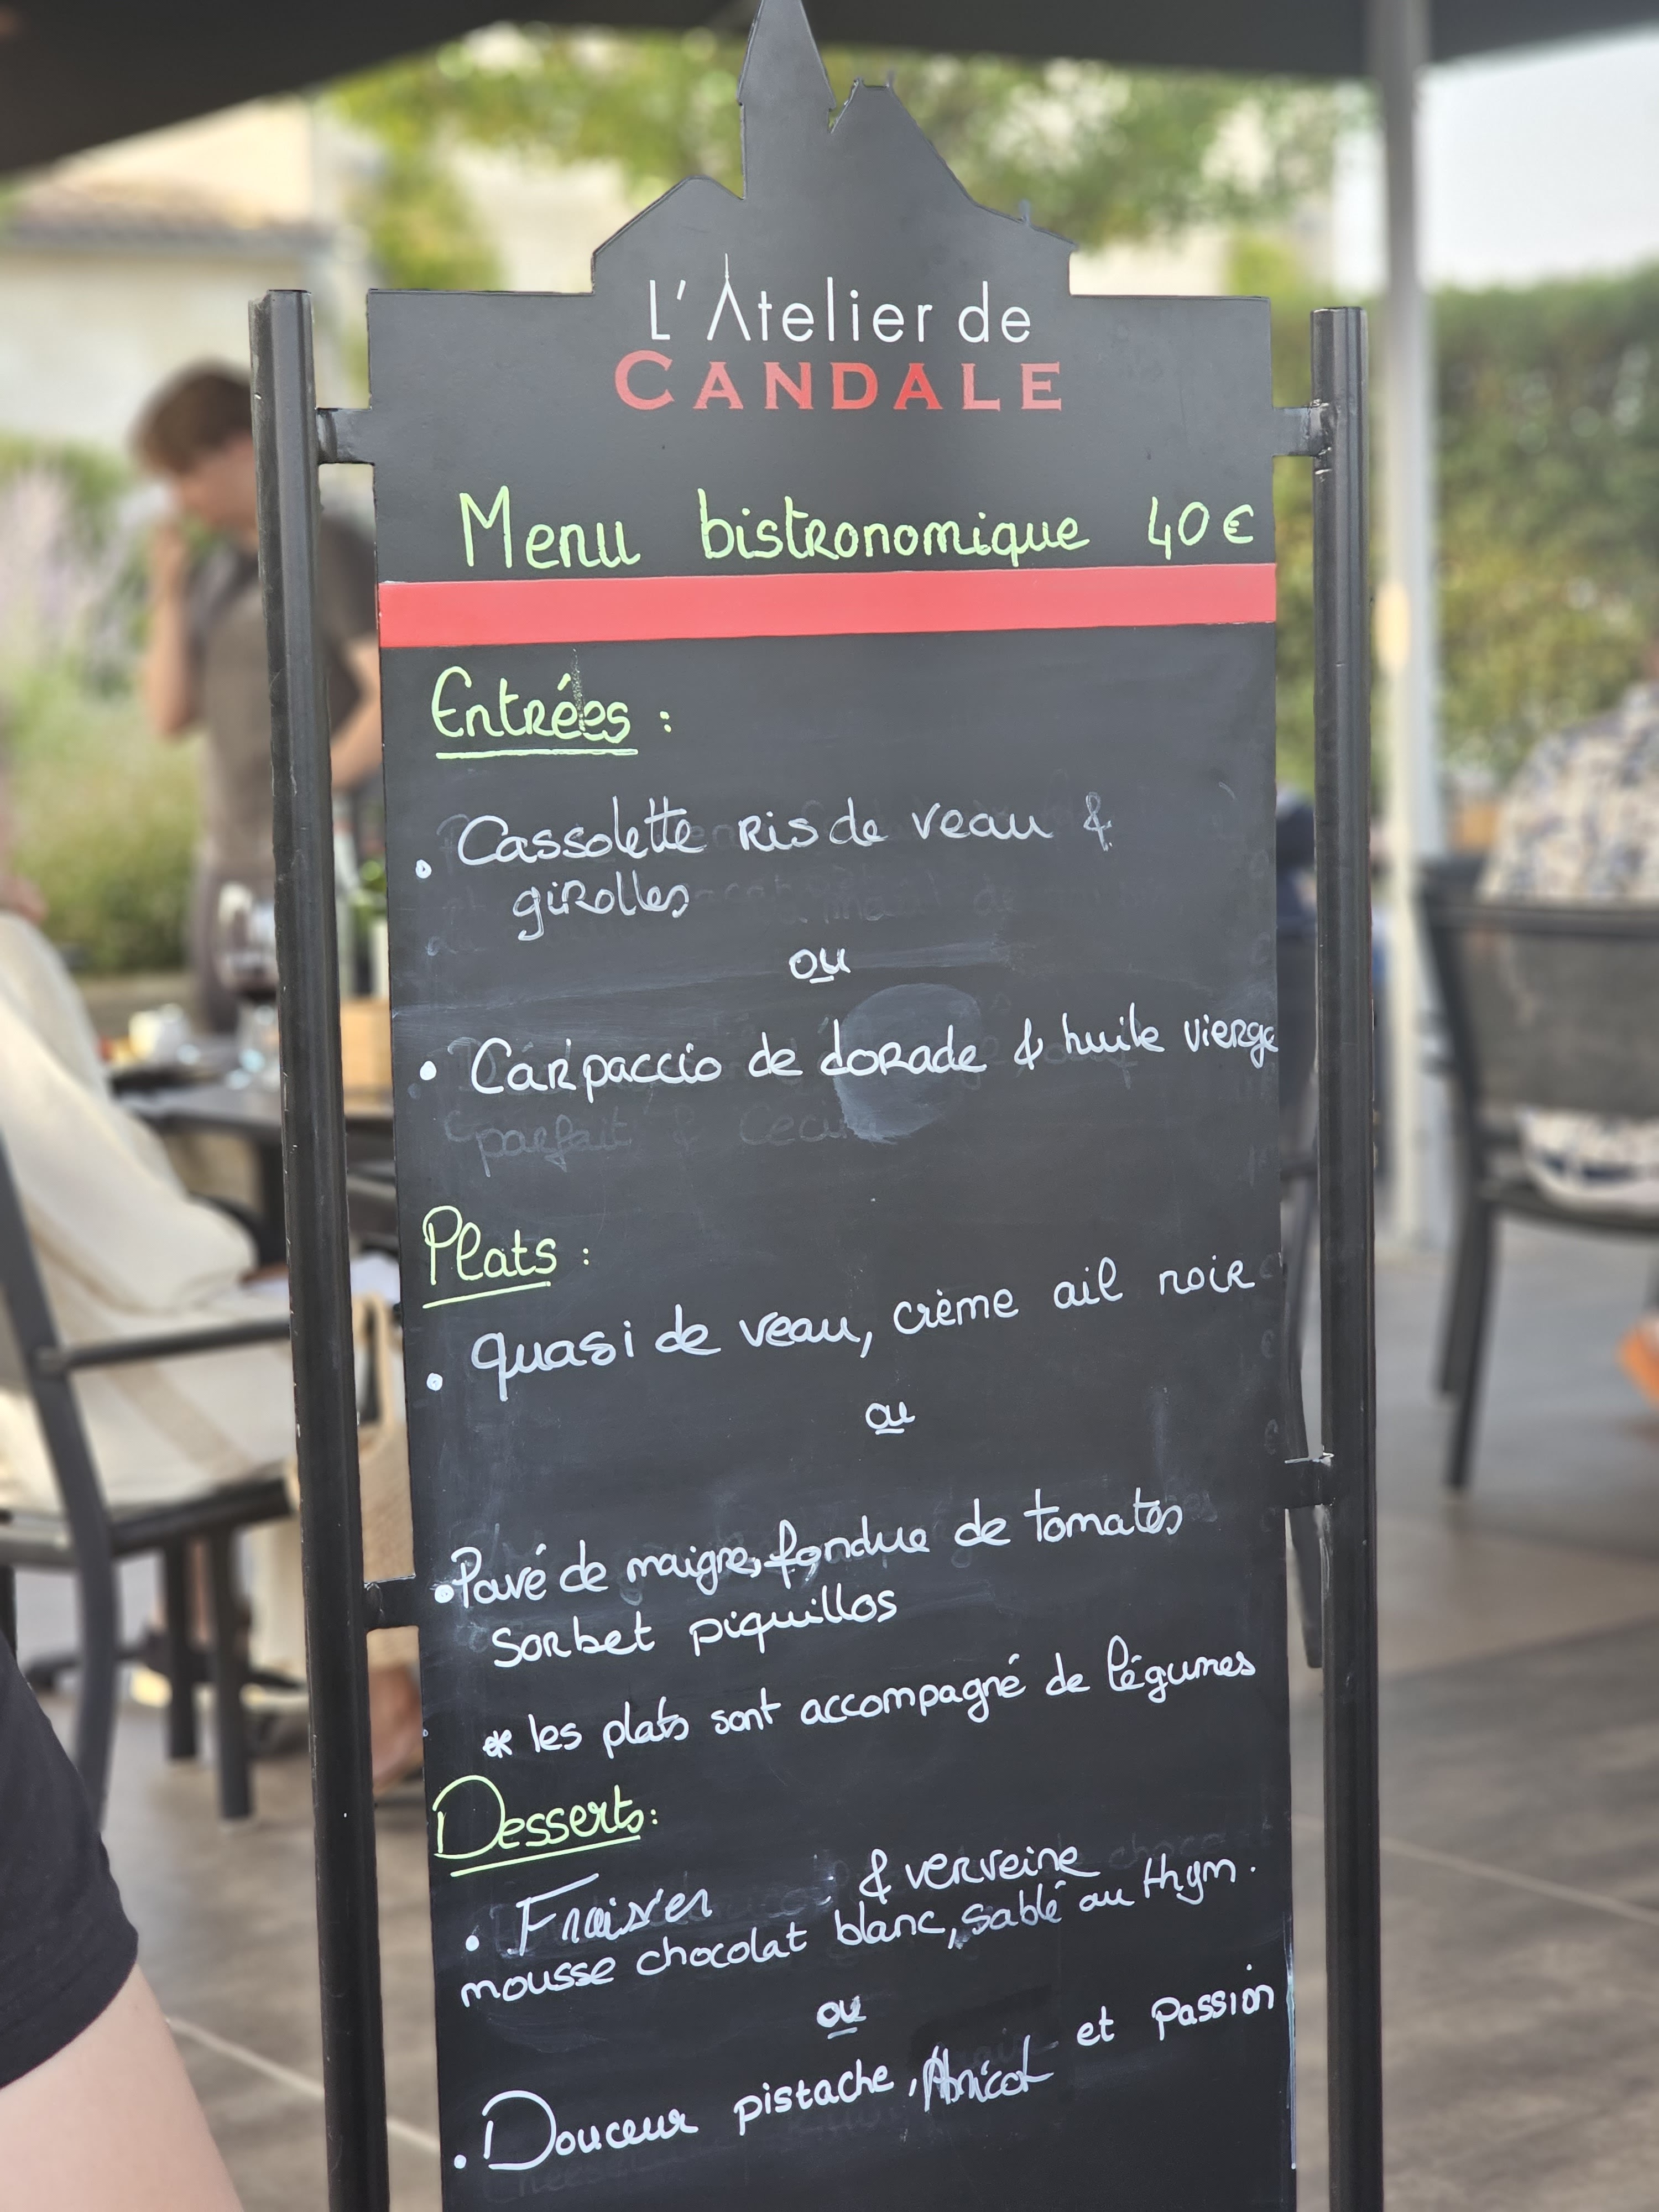 L'Atelier de
CANDALE
Menu bistronomique 40€
Entrées :
• Cassolette Ris de veau &
girolles
ou
• Carpaccio de dorade & huile vierge
parfait &
Plats :
• quasi de veau, crème ail noir
ou
• Pavé de maigre, fondue de tomates
Sorbet piquillos
* les plats sont accompagné de légumes
Desserts :
• Fraisier & verveine
mousse chocolat blanc, sablé au thym.
ou
• Douceur pistache, Abricot et passion